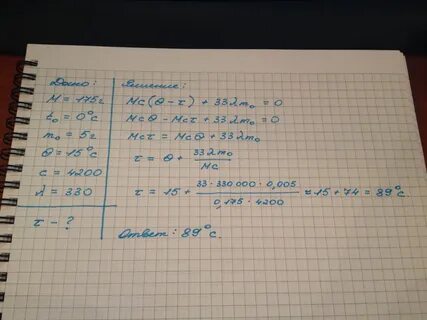 Дано:
M = 175г
t₀ = 0°С
m₀ = 5г
θ = 15°С
c = 4200
λ = 330
τ - ?
Решение:
Mc(θ - τ) + 33λm₀ = 0
Mcθ - Mcτ + 33λm₀ = 0
Mcτ = Mcθ + 33λm₀
τ = θ + 33λm₀ / Mc
τ = 15 + 33 · 330 000 · 0,005 / 0,175 · 4200 ≈ 15 + 74 = 89°С
Ответ: 89°С.